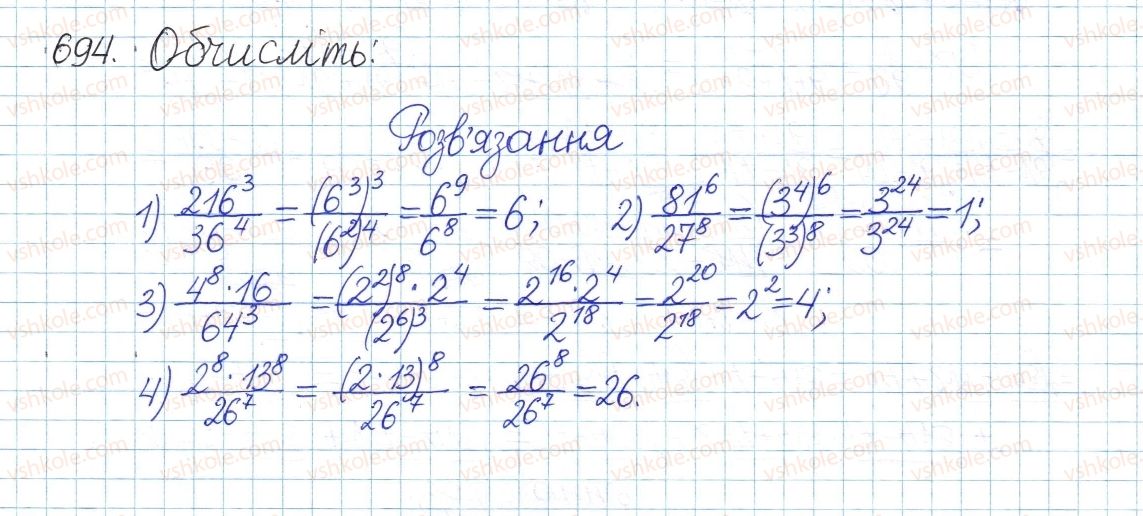 694. Обчисліть:
Розв'язання
1) 216³/36⁴ = (6³)³/(6²)⁴ = 6⁹/6⁸ = 6; 2) 81⁶/27⁸ = (3⁴)⁶/(3³)⁸ = 3²⁴/3²⁴ = 1;
3) 4⁸·16/64³ = (2²)⁸·2⁴/(2⁶)³ = 2¹⁶·2⁴/2¹⁸ = 2²⁰/2¹⁸ = 2² = 4;
4) 2⁸·13⁸/26⁷ = (2·13)⁸/26⁷ = 26⁸/26⁷ = 26.